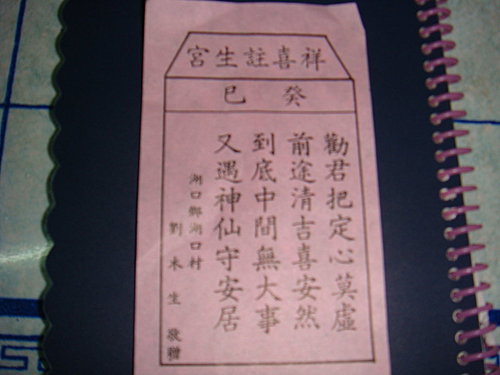 祥喜註生宮
癸巳
勸君把定心莫虛
前途清吉喜安然
到底中間無大事
又遇神仙守安居
湖口鄉湖口村
劉未生敬贈